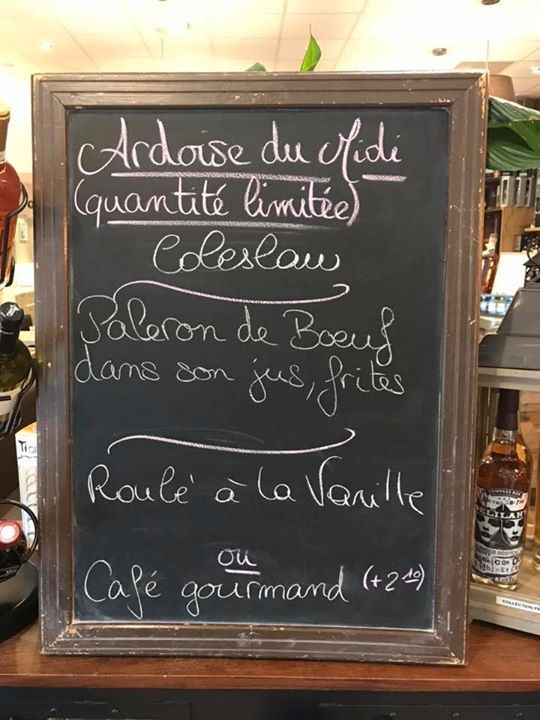 Ardoise du Midi
(quantité limitée)
Coleslaw
Paleron de Bœuf
dans son jus, frites
Roulé à la Vanille
ou
Café gourmand (+2.10)
DELILAH'S
COLLECTION